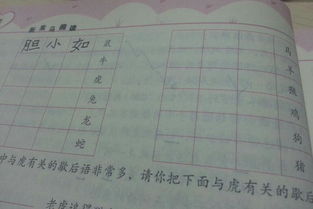 新米乌阅读
胆小如鼠
牛
虎
兔
龙
蛇
马
羊
猴
鸡
狗
猪
中与虎有关的歇后语非常多，请你把下面与虎有关的歇后